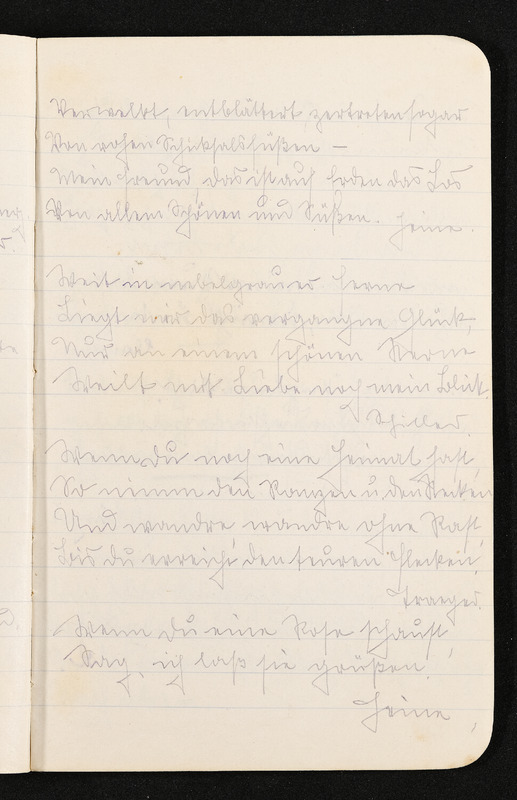 Verwelkt, entblättert, zertreten sogar
Von rohen Schicksalsfüßen –
Mein Freund, das ist auf Erden das Los
Von allem Schönen und Süßen. Heine.
Weit in nebelgrauer Ferne
Liegt mir das vergangne Glück,
Nur an einem schönen Sterne
Weilt mit Liebe noch mein Blick.
Schiller.
Wenn Du noch eine Heimat hast,
So nimm den Ranzen u. den Stecken
Und wandre wandre ohne Rast,
Bis du erreicht den teuren Flecken.
Traeger.
Wenn Du eine Rose schaust,
Sag, ich laß sie grüßen.
Heine,